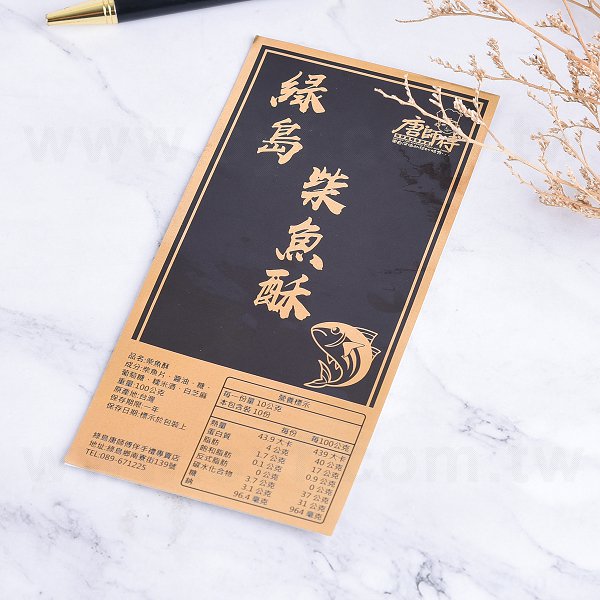 綠島
柴魚酥
唐師傅
品名:柴魚酥
成分:柴魚片、醬油、糖、
葡萄糖、糯米酒、白芝麻
重量:100公克
原產地:台灣
保存期限:一年
保存日期:標示於包裝上
綠島唐師傅伴手禮專賣店
地址:綠島鄉南寮街139號
TEL:089-671225
營養標示
每一份量 10公克
本包含裝 10份
每份 每100公克
熱量 43.9 大卡 439 大卡
蛋白質 4 公克 40 公克
脂肪 1.7 公克 17 公克
飽和脂肪 0.1 公克 0.9 公克
反式脂肪 0 公克 0 公克
碳水化合物 3.7 公克 37 公克
糖 3.1 公克 31 公克
鈉 96.4 毫克 964 毫克